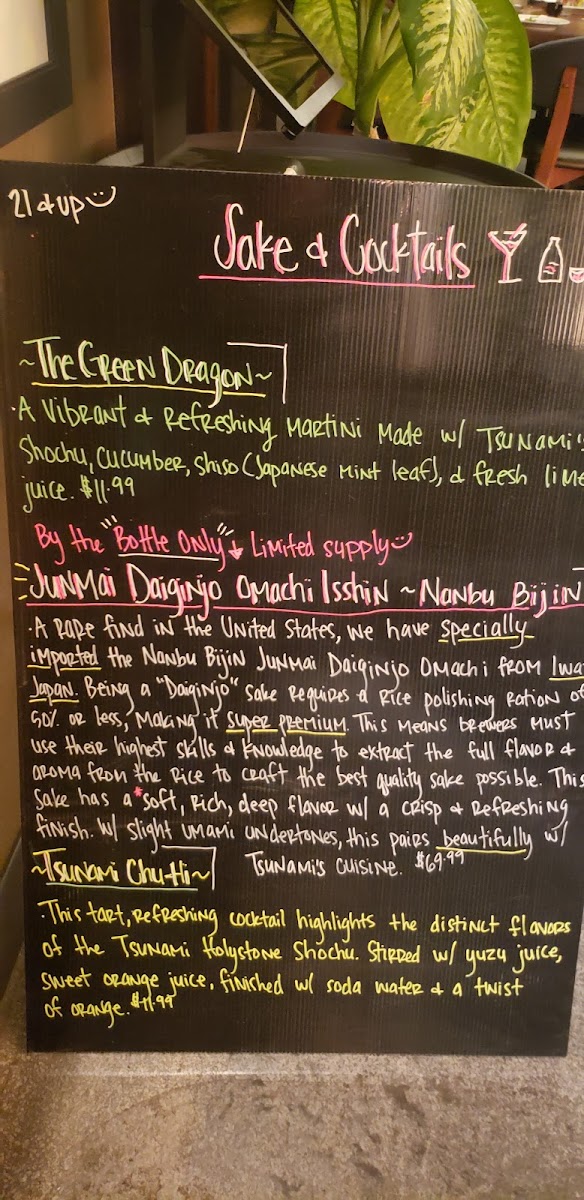 21 & up
Sake & Cocktails
~The Green Dragon~
·A Vibrant & Refreshing Martini Made w/ Tsunami's
Shochu, Cucumber, Shiso (Japanese Mint leaf), & fresh lime
juice. $11.99
By the "Bottle Only" Limited supply
Junmai Daiginjo Omachi Isshin ~ Nanbu Bijin
·A Rare find in the United States, we have specially
imported the Nanbu Bijin Junmai Daiginjo Omachi from Iwa
Japan. Being a "Daiginjo" sake requires a Rice polishing ration of
50% or less, making it super premium. This means brewers must
use their highest skills & knowledge to extract the full flavor &
aroma from the rice to craft the best quality sake possible. This
Sake has a *soft, rich, deep flavor w/ a crisp & refreshing
finish. W/ slight umami undertones, this pairs beautifully w/
Tsunami's cuisine. $69.99
~Tsunami Chu-Hi~
·This tart, refreshing cocktail highlights the distinct flavors
of the Tsunami Holystone Shochu. Stirred w/ yuzu juice,
sweet orange juice, finished w/ soda water & a twist
of orange. $11.99